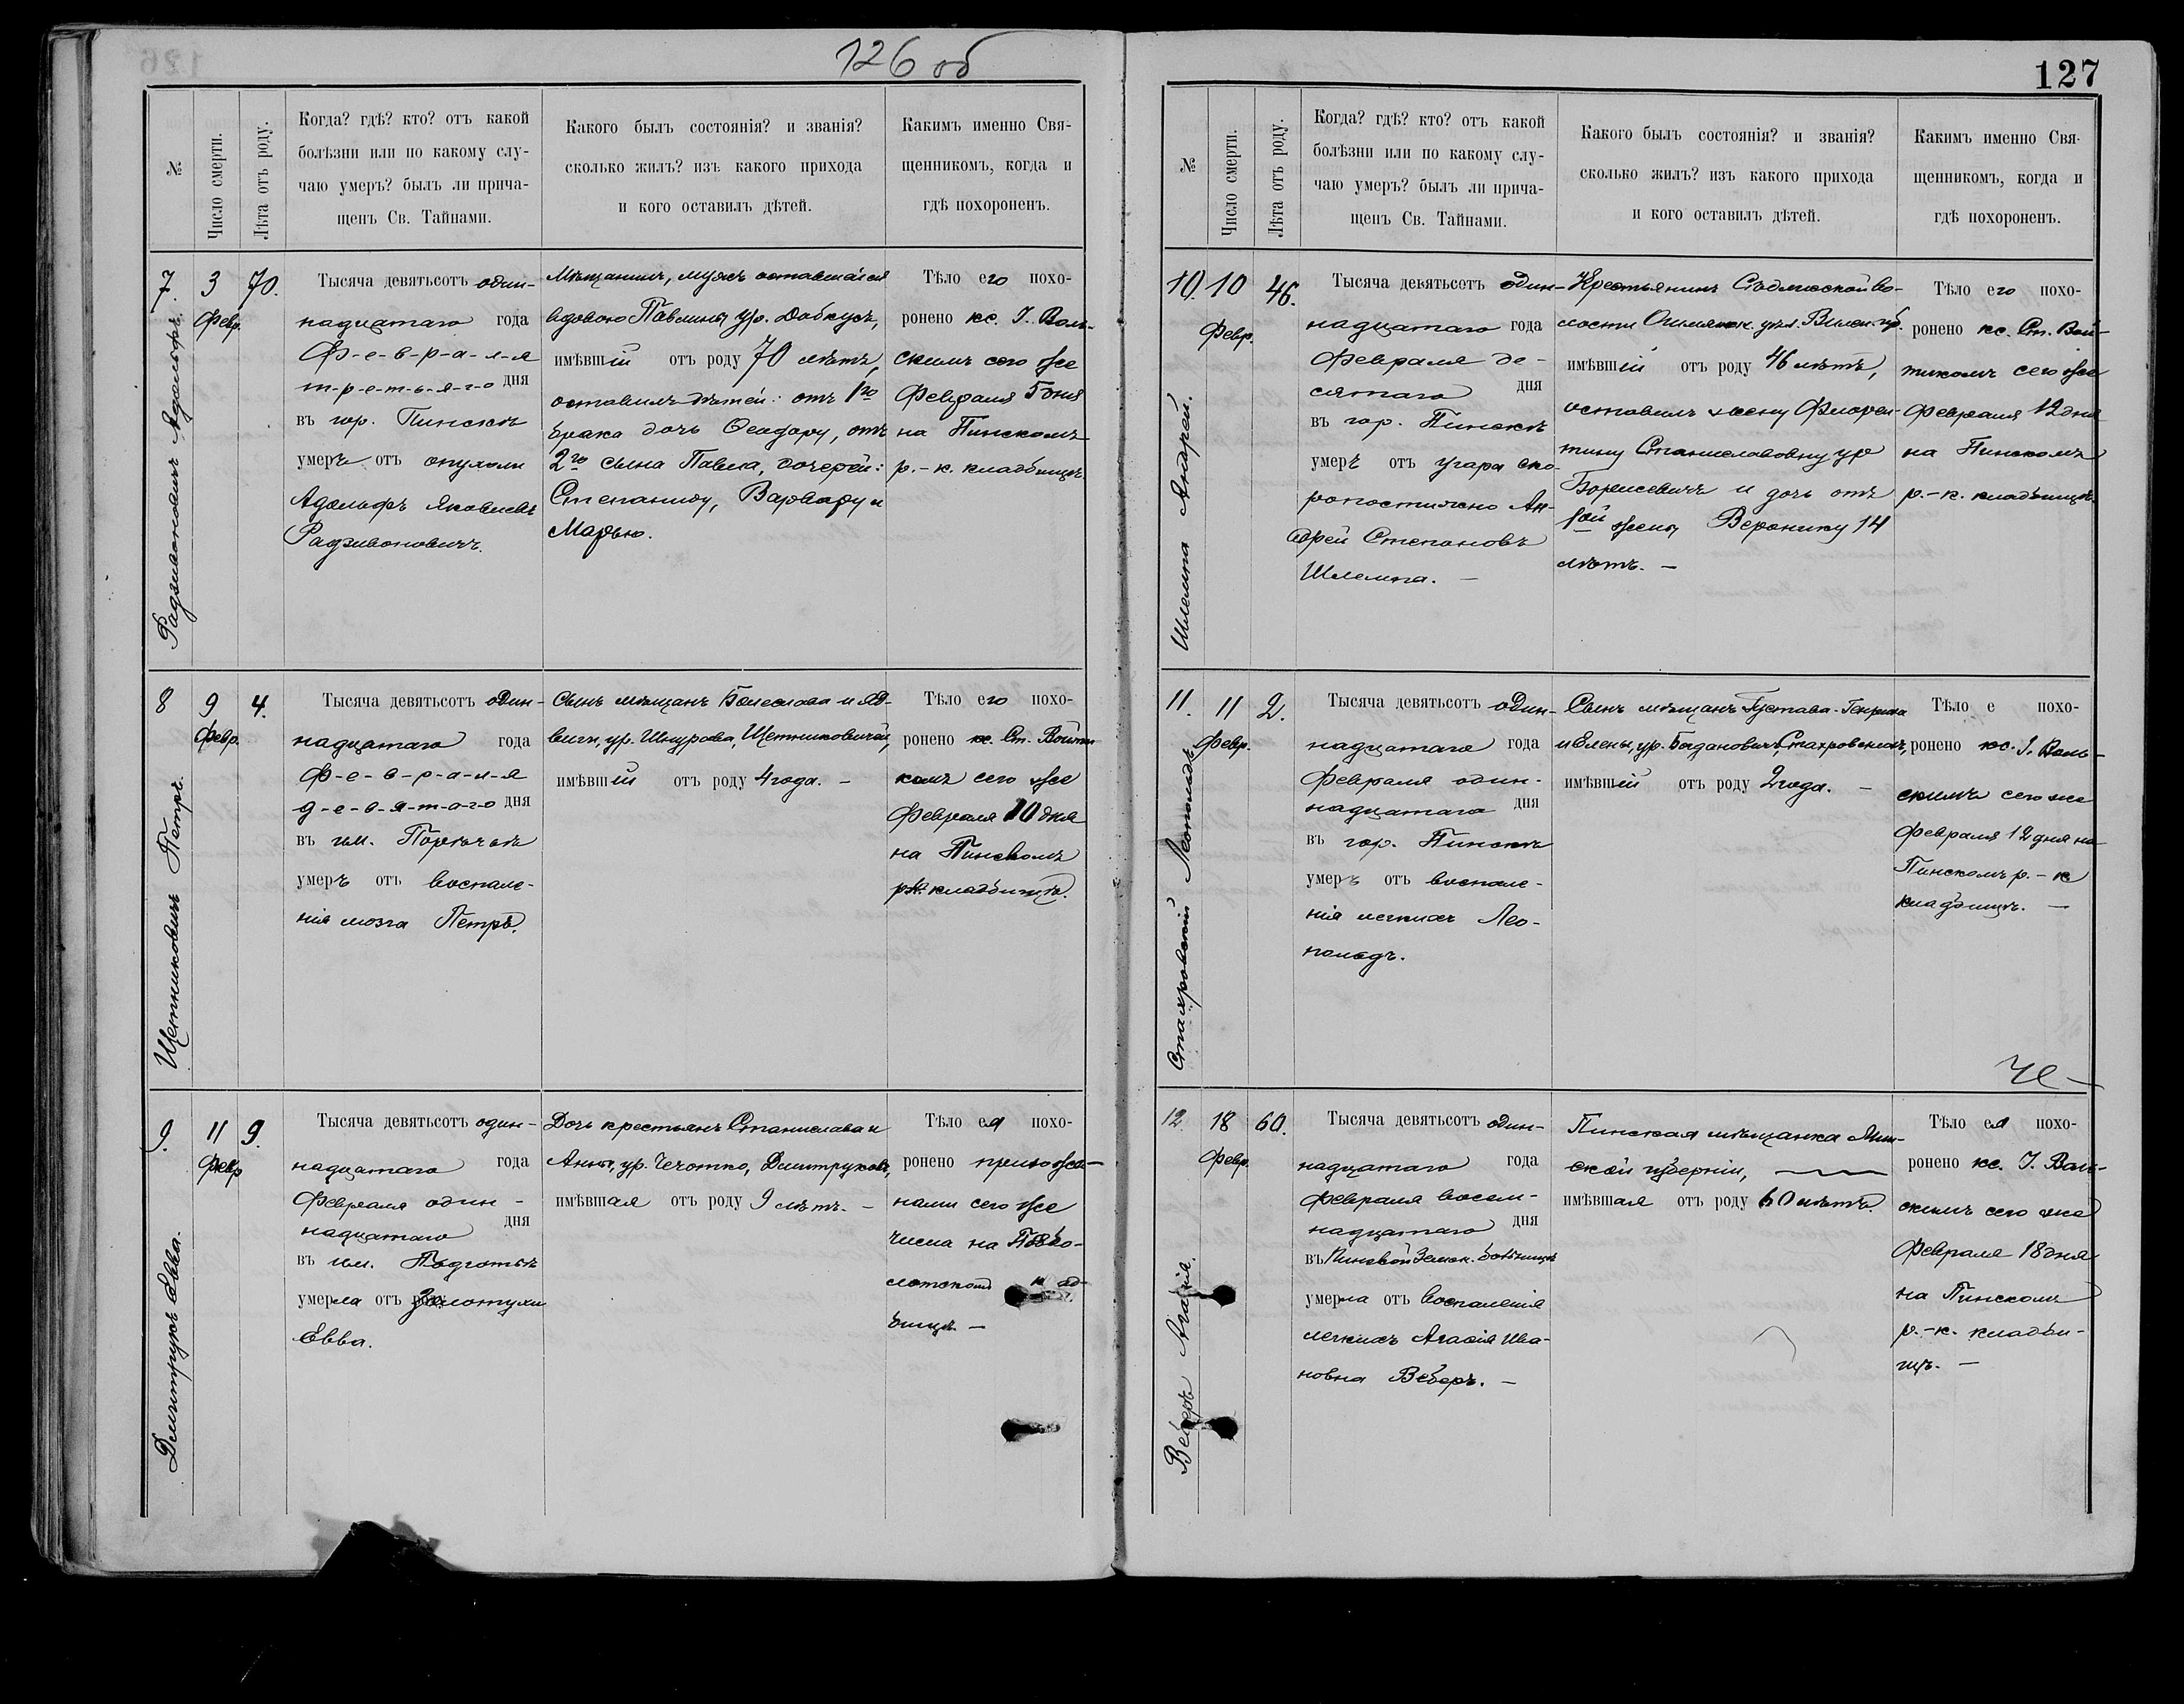 126 об
№
Число смерти.
Лѣта отъ роду.
Когда? гдѣ? кто? отъ какой
болѣзни или по какому слу-
чаю умеръ? былъ ли прича-
щенъ Св. Тайнами.
Какого былъ состоянія? и званія?
сколько жилъ? изъ какого прихода
и кого оставилъ дѣтей.
Какимъ именно Свя-
щенникомъ, когда и
гдѣ похороненъ.
7.
Радзивоновичъ Адольфъ.
3
Февр.
70.
Тысяча девятьсотъ один-
надцатаго года
Ф-е-в-р-а-л-я
т-р-е-т-ь-я-г-о дня
въ гор. Пинскѣ
умеръ отъ опухоли
Адольфъ Яковлевъ
Радзивоновичъ.
Мѣщанинъ, мужъ оставшейся
вдовою Павлины, ур. Добкусъ,
имѣвшій отъ роду 70 лѣтъ,
оставилъ дѣтей: отъ 1го
брака дочь Ѳеодору, отъ
2го сына Павла, дочерей:
Степаниду, Варвару и
Марью.
Тѣло его похо-
ронено кс. І. Воль-
скимъ сего же
Февраля 5 дня
на Пинскомъ
р.-к. кладбищѣ.
8
Щетниковичъ Петръ.
9
Февр.
4.
Тысяча девятьсотъ один-
надцатаго года
Ф-е-в-р-а-л-я
д-е-в-я-т-а-г-о дня
въ им. Порѣчьѣ
умеръ отъ воспале-
нія мозга Петръ.
Сынъ мѣщанъ Болеслава и Яд-
виги, ур. Шнурова, Щетниковичей,
имѣвшій отъ роду 4 года. —
Тѣло его похо-
ронено кс. Ст. Войти-
комъ сего же
Февраля 10 дня
на Пинскомъ
р.-к. кладбищѣ.
9.
Дмитрукъ Евва.
11
Февр
9.
Тысяча девятьсотъ один-
надцатаго года
Февраля один-
надцатаго дня
въ им. Подготьѣ
умерла отъ Золотухи
Евва.
Дочь крестьянъ Станислава и
Анны, ур. Чечотко, Дмитруковъ,
имѣвшая отъ роду 9 лѣтъ. —
Тѣло ея похо-
ронено прихожа-
нами сего же
числа на
бищѣ. —
127
№
Число смерти.
Лѣта отъ роду.
Когда? гдѣ? кто? отъ какой
болѣзни или по какому слу-
чаю умеръ? былъ ли прича-
щенъ Св. Тайнами.
Какого былъ состоянія? и званія?
сколько жилъ? изъ какого прихода
и кого оставилъ дѣтей.
Какимъ именно Свя-
щенникомъ, когда и
гдѣ похороненъ.
10.
Шлемпа Андрей.
10
Февр.
46.
Тысяча девятьсотъ один-
надцатаго года
Февраля де-
сятаго дня
въ гор. Пинскѣ
умеръ отъ угара ско-
ропостижно Ан-
дрей Степановъ
Шлемпа. —
Крестьянинъ Сѣдлиской во-
лости Ошмянск. уѣз. Вилен. губ.
имѣвшій отъ роду 46 лѣтъ,
оставилъ жену Флорен-
тину Станиславовну ур
Борисевичъ и дочь отъ
1ой жены Веронику 14
лѣтъ. —
Тѣло его похо-
ронено кс. Ст. Вой-
тикомъ сего же
Февраля 12 дня
на Пинскомъ
р.-к. кладбищѣ.
11.
Стахровскій Леопольдъ
11
Февр.
2.
Тысяча девятьсотъ один-
надцатаго года
Февраля один-
надцатаго дня
въ гор. Пинскѣ
умеръ отъ воспале-
нія легкихъ Лео-
польдъ.
Сынъ мѣщанъ Густава-Генрика
и Елены, ур. Богдановичъ, Стахровскихъ,
имѣвшій отъ роду 2 года. —
Тѣло е похо-
ронено кс. І. Воль-
скимъ сего же
Февраля 12 дня на
Пинскомъ р.-к
кладбищѣ. —
12.
Веберъ Агафія.
18
Февр.
60.
Тысяча девятьсотъ один-
надцатаго года
Февраля восем-
надцатаго дня
въ Пинской Земск. больницѣ
умерла отъ воспаленія
легкихъ Агафія Ива-
новна Веберъ. —
Пинская мѣщанка Мин-
ской губерніи,
имѣвшая отъ роду 60 лѣтъ.
Тѣло ея похо-
ронено кс. І. Воль-
скимъ сего же
Февраля 18 дня
на Пинскомъ
р.-к. кладби-
щѣ. —